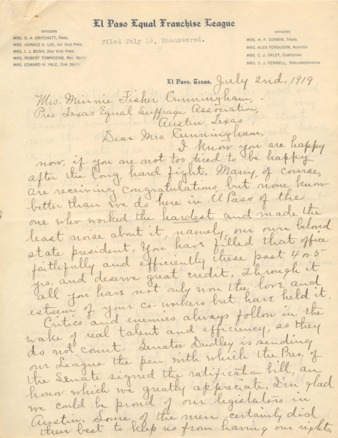 El Paso Equal Franchise League
OFFICERS
MRS. D. A. CRITCHETT, PRES.
MRS. HORACE B. LAY, 1ST VICE PRES.
MRS. L. J. BUSH, 2ND VICE PRES.
MRS. ROBERT TOWNSEND, REC. SEC'Y
MRS. EDWARD H. YALE, COR. SEC'Y
Filed July 10, Unanswered.
OFFICERS
MRS. ALEX FERGUSON, AUDITOR
MRS. S. J. FENNELL, PARLIAMENTARIAN
El Paso, Texas, July 2nd, 1919
Mrs. Minnie Fisher Cunningham,
Pres Texas Equal Suffrage Association,
Austin, Texas
Dear Mrs Cunningham,
I know you are happy
now, if you are not too tired to be happy
after the long hard fight. Many, of course,
are receiving congratulations, but none know
better than we do here in El Paso of the
one who worked the hardest and made the
least noise about it, namely, our own beloved
state president. You have filled that office
faithfully and efficiently these past 4 or 5
yrs. and deserve great credit. Through it
all you have not only won the love and
esteem of your co-workers but have held it.
Critics and enemies always follow in the
wake of real talent and efficiency, so they
do not count. Senator Dudley is sending
our League the pen with which the Pres. of
the Senate signed the ratification bill, an
honor which we greatly appreciate. I'm glad
we could be proud of our legislators in
Austin. Some of the men certainly did
their best to keep us from having our rights